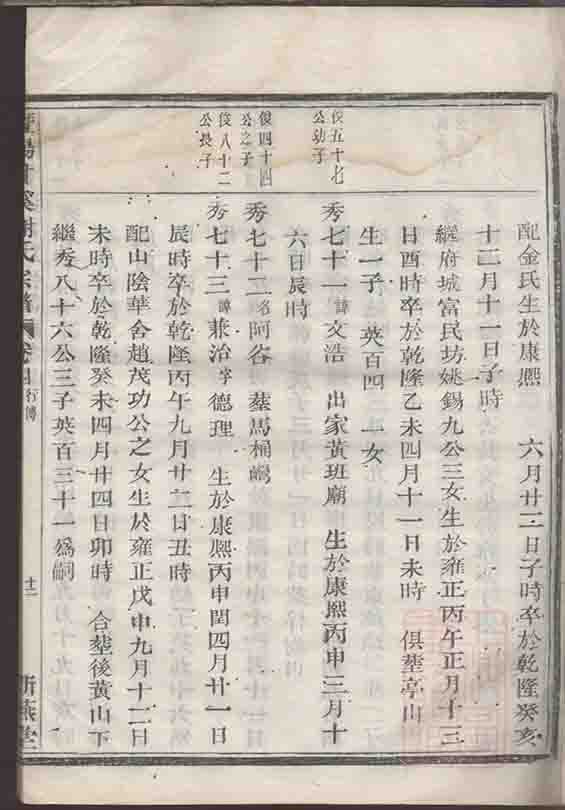 配金氏生於康熙 六月廿二日子時卒於乾隆癸亥
十二月十一日子時
繼府城富民坊姚錫九公三女生於雍正丙午正月十三
日酉時卒於乾隆乙未四月十一日未時 俱塟亭山
生一子 英百四 一女
俊五十七
公幼子
秀七十一 諱 文浩 出家黃班廟 生於康熙丙申三月十
六日辰時
俊四十四
公之子
秀七十二 名 阿谷 塟馬桶
俊八十二
公長子
秀七十三 諱 兼治 字 德理 生於康熙丙申閏四月廿一日
辰時卒於乾隆丙午九月廿二日丑時
配山陰華舍趙茂功公之女生於雍正戊申九月十二日
未時卒於乾隆癸未四月廿四日卯時 合塟後黃山下
繼秀八十六公三子英百三十一為嗣
謝氏宗譜 卷 行傳